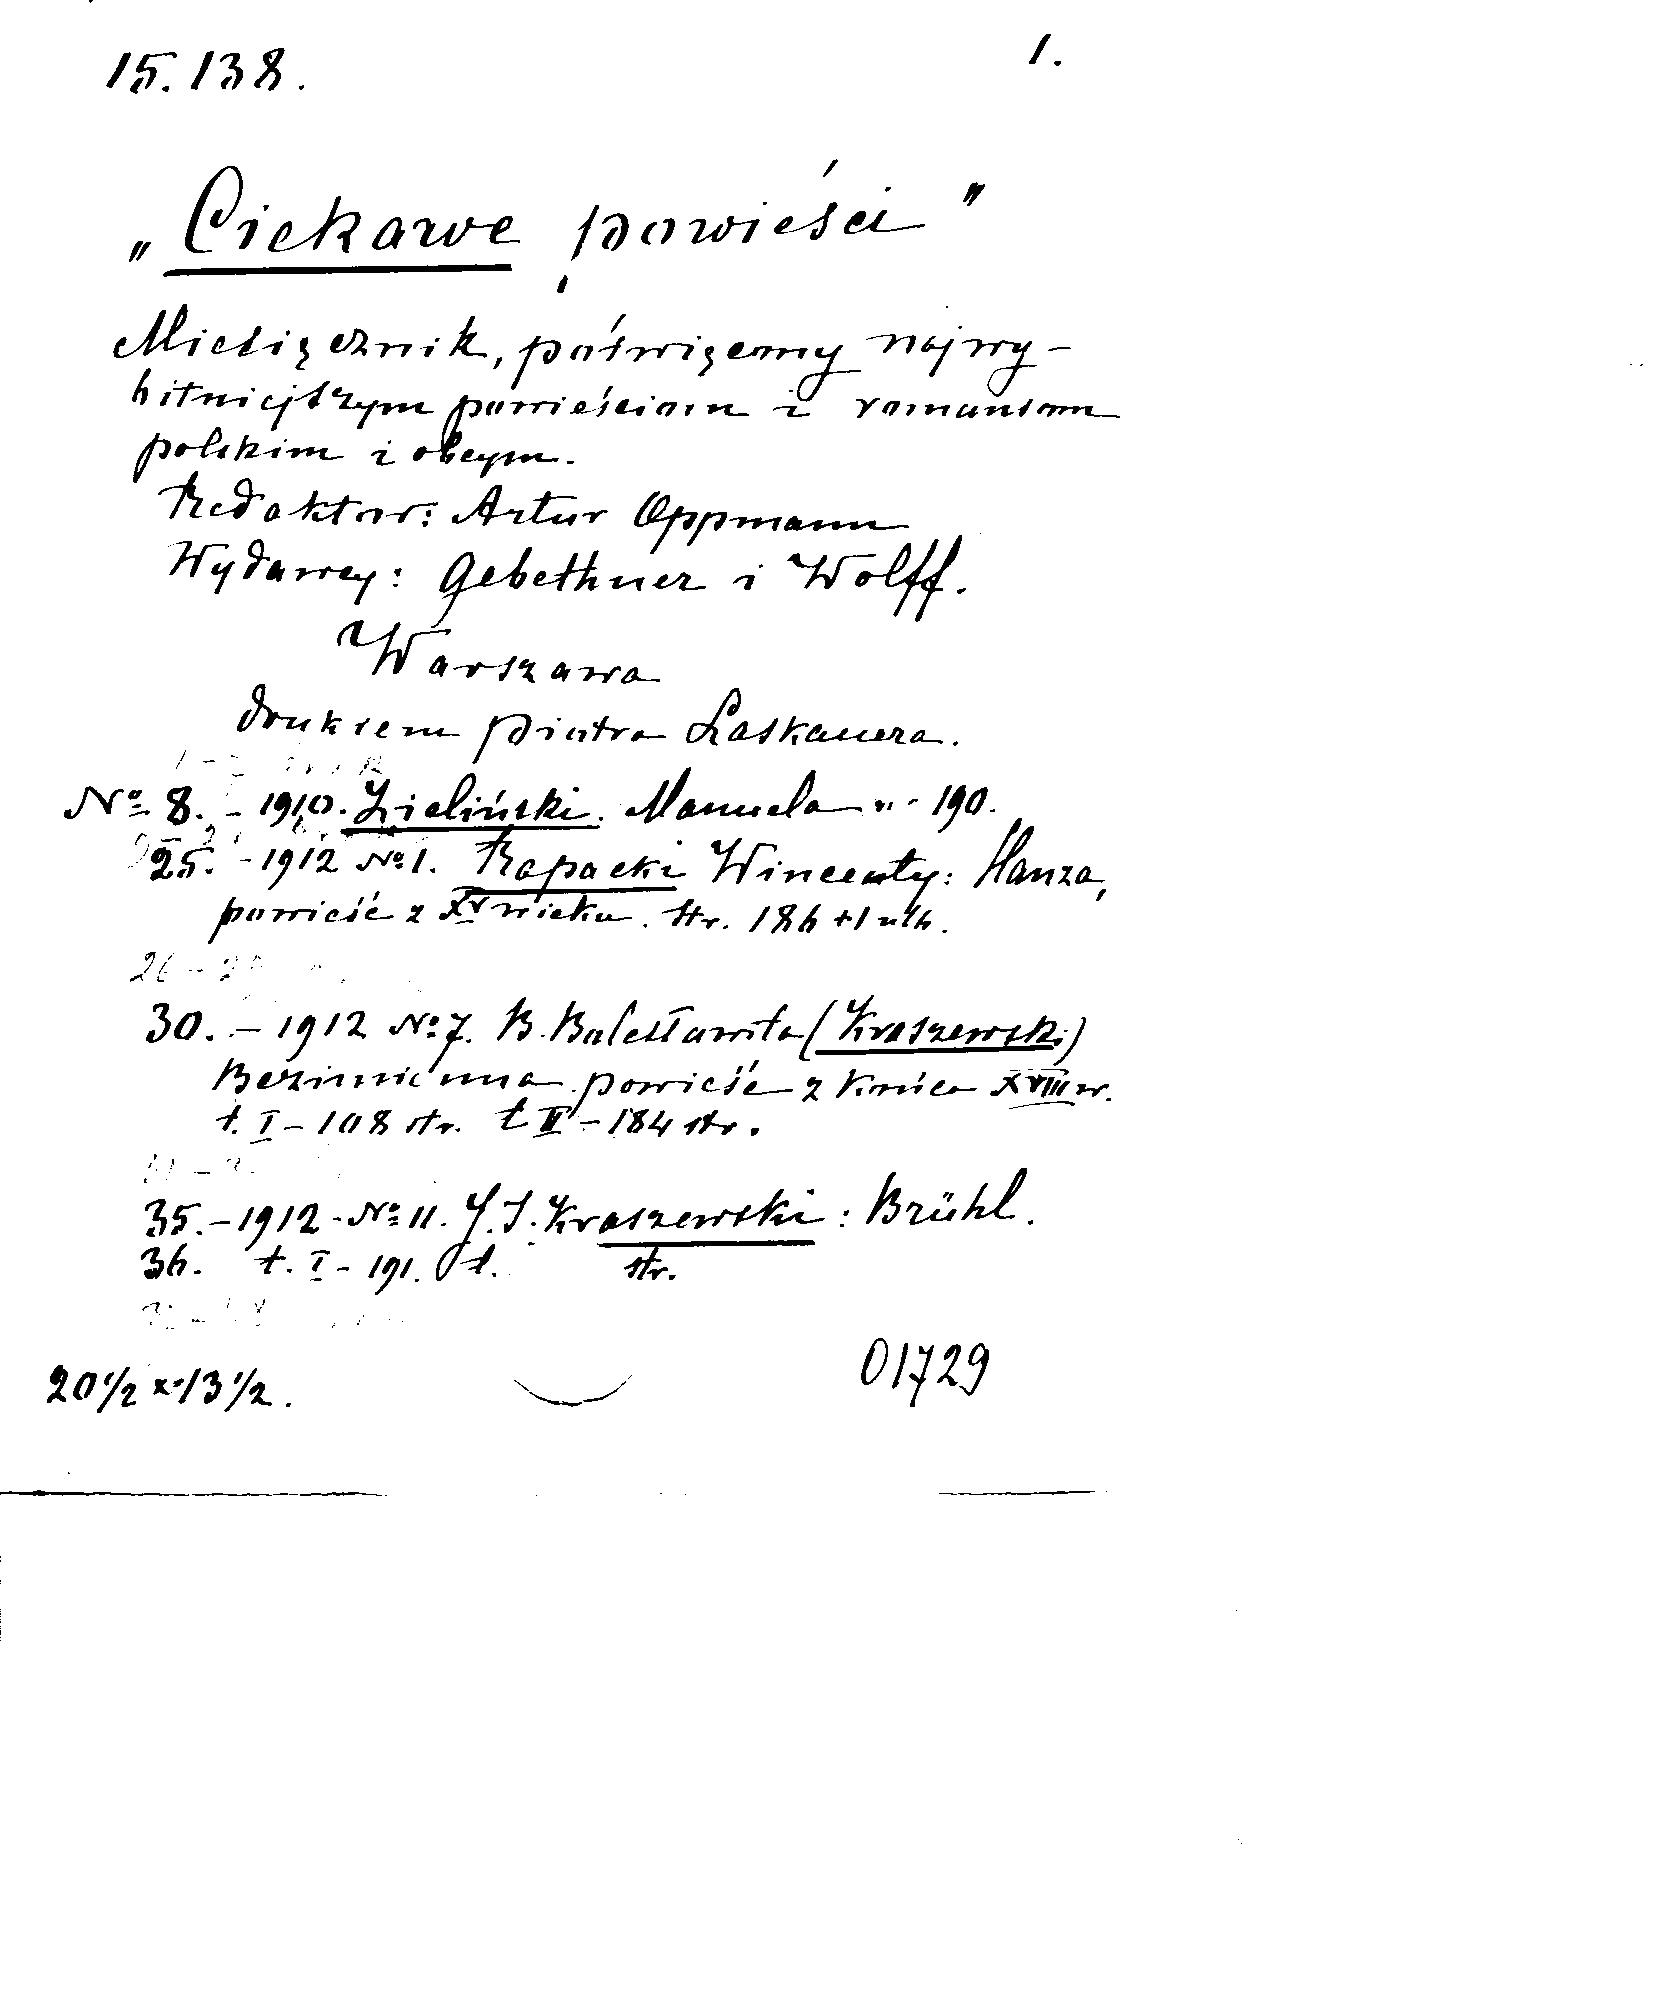 15.138.
1.
„Ciekawe powieści"
Miesięcznik, poświęcony najwy-
bitniejszym powieściom i romansom
polskim i obcym.
Redaktor: Artur Oppmann
Wydawcy: Gebethner i Wolff.
Warszawa
drukiem Piotra Laskauera.
№ 8. - 1910. Zieliński. Manuela 190.
25. - 1912 №1. Rapacki Wincenty: Hanza,
powieść z XV wieku. str. 186 +1 nlb.
30. - 1912 №7. B. Bolesławita (Kraszewski)
Bezimienna powieść z końca XVIII w.
t. I - 108 str. t II - 184 str.
35. - 1912 - № 11. J. I. Kraszewski: Brühl.
36. t. I - 191. t. str.
20 1/2 x 13 1/2.
01729